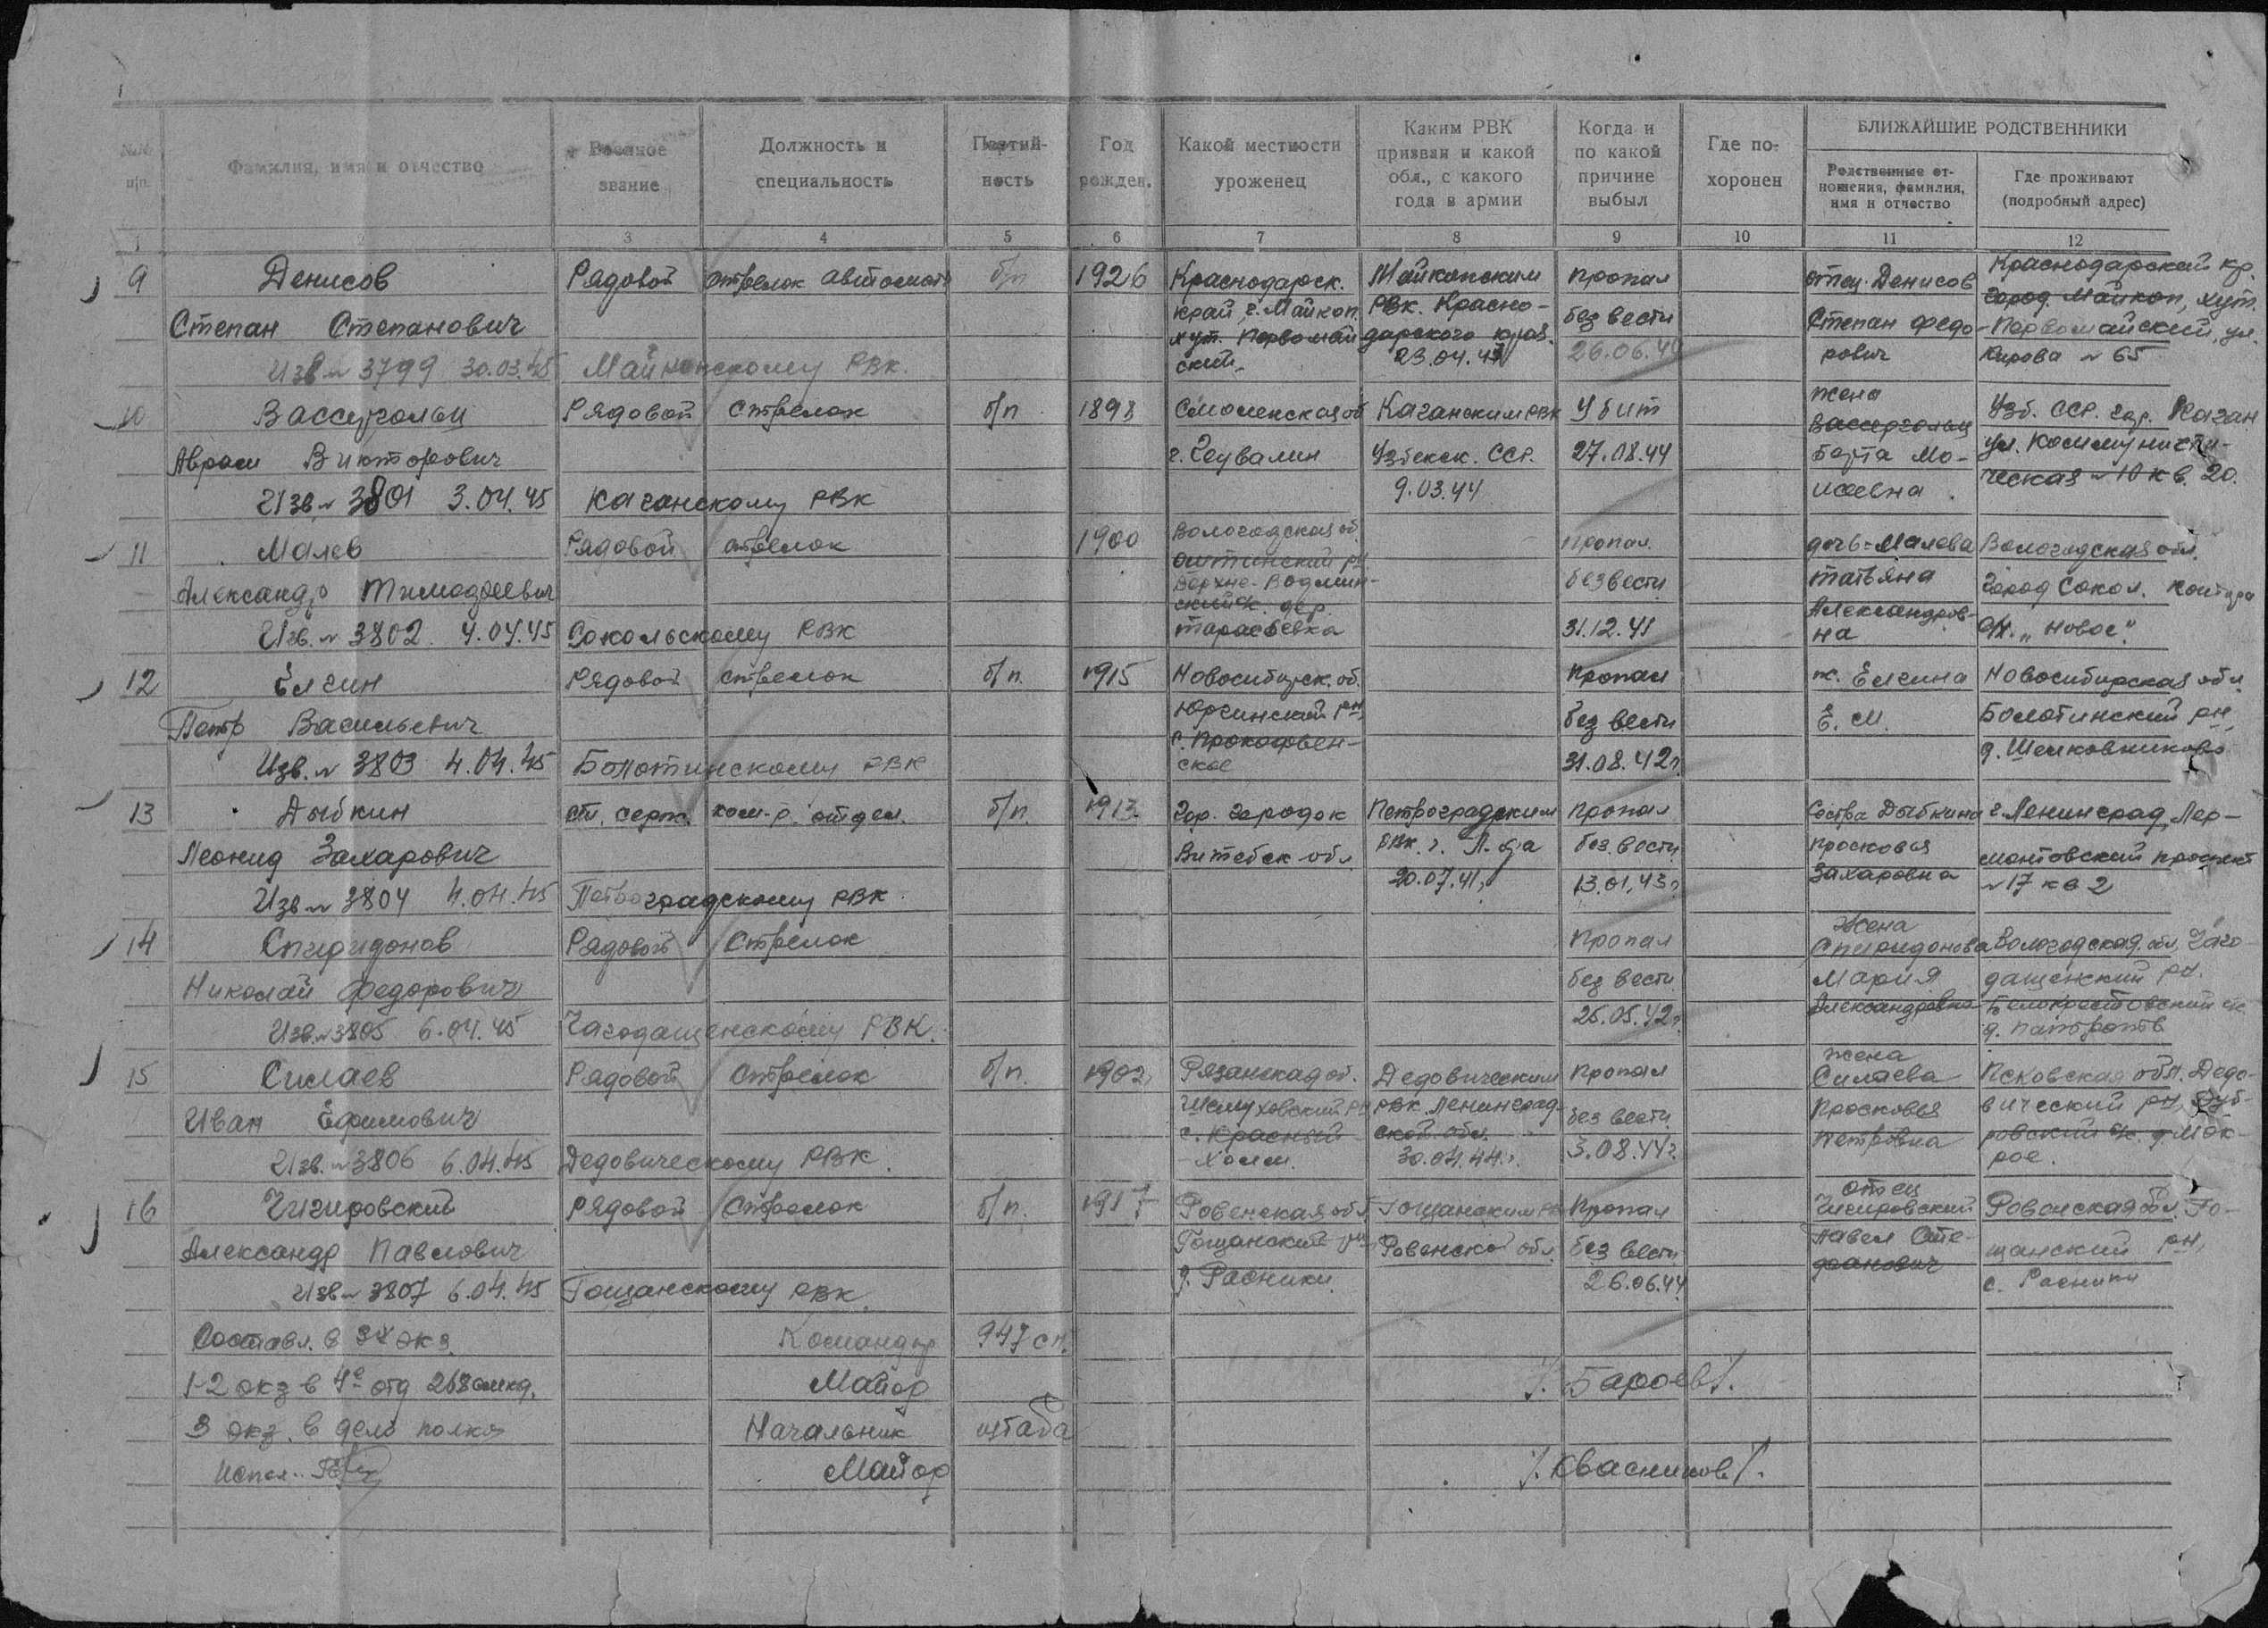 №№ п/п.
Фамилия, имя и отчество
Военное звание
Должность и специальность
Партий-ность
Год рожден.
Какой местности уроженец
Каким РВК призван и какой обл., с какого года в армии
Когда и по какой причине выбыл
Где по-хоронен
БЛИЖАЙШИЕ РОДСТВЕННИКИ
Родственные от-ношения, фамилия, имя и отчество
Где проживают (подробный адрес)
1 2 3 4 5 6 7 8 9 10 11 12
9 Денисов Рядовой стрелок автомат б/п 1926 Краснодарск. Майкопским пропал отец Денисов Краснодарский кр.
Степан Степанович край г. Майкоп. РВК. Красно- без вести Степан Федо- город Майкоп, хут.
хут. Первомай дарского края. Первомайский, ул.
Изв № 3799 30.03.45 Майкопскому РВК. ский. 23.04.43 26.06.44 рович Кирова № 65
10 Вассергольц Рядовой стрелок б/п 1898 Смоленская об Каганским РВК Убит жена Вассергольц Узб. ССР. гор. Каган
Абрам Викторович г. Узбекск. ССР. 27.08.44 Берта Мо- ул. Коммунисти-
Изв № 3801 3.04.45 Каганскому РВК 9.03.44 исеевна ческая № 10 кв. 20.
11 Малев Рядовой стрелок 1900 Вологодская об. пропал дочь-Малева Вологодская обл.
Александр Тимофеевич рн Верхне-Водлин- без вести Татьяна город Сокол. контора
ский дер. Александров-
Изв. № 3802 4.04.45 Сокольскому РВК Тарасовка 31.12.41 на "Новое".
12 Елгин Рядовой стрелок б/п. 1915 Новосибирск. об. Пропал ж. Елгина Новосибирская обл.
Петр Васильевич Юргинский рн, без вести Е. М. Болотинский рн,
с. Прокофьен-
Изв. № 3803 4.04.45 Болотинскому РВК ское 31.08.42г. д.
13 Дыбкин ст. серж. ком-р. отдел. б/п. 1913. гор. городок Петроградским пропал сестра Дыбкина г. Ленинград, Лер-
Леонид Захарович Витебск обл РВК. г. Л-да без вести Просковья монтовский проспект
Изв № 3804 4.04.45 Петроградскому РВК. 20.07.41г. 13.01.43г. Захаровна № 17 кв 2
14 Спиридонов Рядовой Стрелок Пропал жена Спиридонова Вологодская обл. Чаго-
Николай Федорович без вести Мария дащенский рн.
Изв. № 3805 6.04.45 Чагодащенскому РВК. 25.05.42г. Александровна Белокрестовский
д.
15 Силаев Рядовой Стрелок б/п. 1902 Рязанская об. Дедовическим Пропал жена Силаева Псковская обл. Дедо-
Иван Ефимович рн РВК. Ленинград- без вести Просковья вический рн, Дуб-
с. Красный ской обл. ровский с/с. д. Мок-
Изв. № 3806 6.04.45 Дедовическому РВК. Холм. 30.04.44г. 3.08.44г. Петровна рое.
16 Чигировский Рядовой Стрелок б/п. 1917 Ровенская обл Гощанским РВК Пропал отец Чигировский Ровенская обл. Го-
Александр Павлович Гощанский рн Ровенской обл. без вести Павел Сте- щанский рн,
Изв № 3807 6.04.45 Гощанскому РВК. д. Расники 26.06.44 фанович с. Расники
Составл. в 3х экз. Командир 947 сп.
1-2 экз в 4е отд 268 Майор /. Бароев /.
3 экз. в дело полка Начальник штаба
Испол. Майор /. Квасников /.